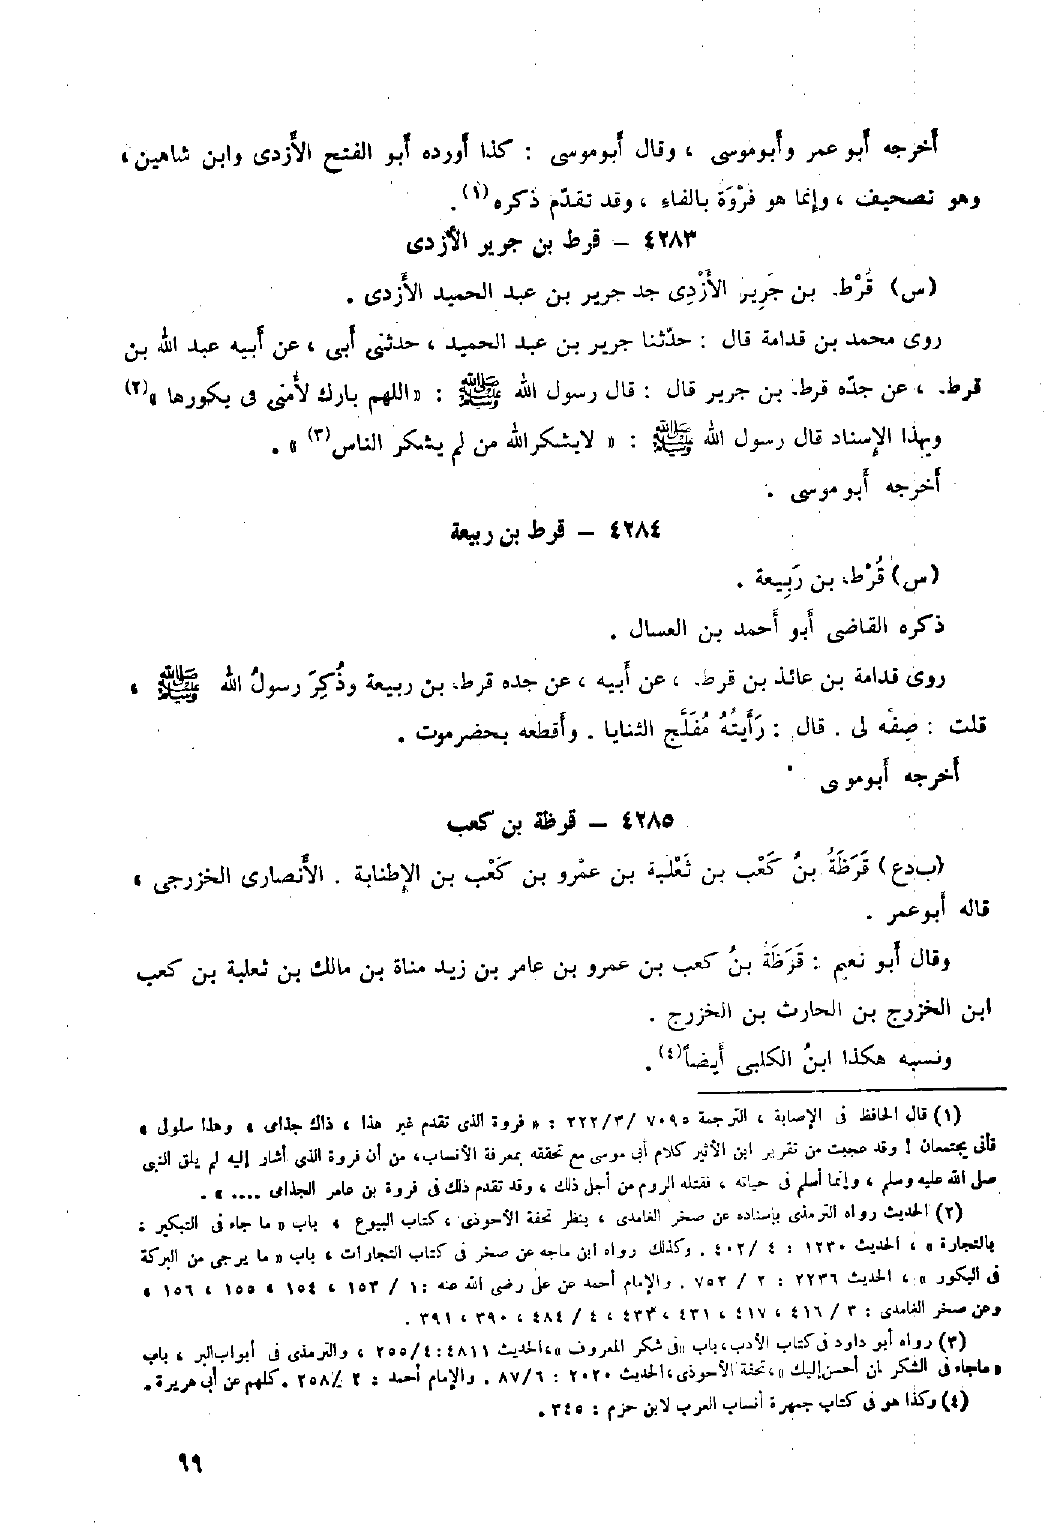 أخرجه أبو عمر وأبوموسى ، وقال أبوموسى : كذا أورده أبو الفتح الأزدى وابن شاهين ،
وهو تصحيف ، وإنما هو فَرْوَة بالفاء ، وقد تقدّم ذكره (١) .
٤٢٨٣ – قرط بن جرير الأزدى
(س) قُرْط. بن جَرِير الأَزْدِى جد جرير بن عبد الحميد الأزدى .
روى محمد بن قدامة قال : حدّثنا جرير بن عبد الحميد ، حدثنى أبى ، عن أبيه عبد الله بن
قرط. ، عن جدّه قرط. بن جرير قال : قال رسول الله ﷺ : « اللهم بارك لأُمتى فى بكورها » (٢)
وبهذا الإسناد قال رسول الله ﷺ : « لايشكرالله من لم يشكر الناس (٣) » .
أخرجه أبو موسى .
٤٢٨٤ – قرط بن ربيعة
(س) قُرْط. بن رَبِيعة .
ذكره القاضى أبو أحمد بن العسال .
روى قدامة بن عائذ بن قرط. ، عن أبيه ، عن جده قرط. بن ربيعة وذُكِرَ رسولُ الله ﷺ ،
قلت : صِفْه لى . قال : رَأَيتُهُ مُفَلَّج الثنايا . وأقطعه بحضرموت .
أخرجه أبومو ى .
٤٢٨٥ – قرظة بن كعب
(ب د ع) قَرَظَةُ بنُ كَعْب بن ثَعْلبة بن عمْرو بن كَعْب بن الإطنابة . الأنصارى الخزرجى ،
قاله أبوعمر .
وقال أبو نعيم : قَرَظَةُ بنُ كعب بن عمرو بن عامر بن زيد مناة بن مالك بن ثعلبة بن كعب
ابن الخزرج بن الحارث بن الخزرج .
ونسبه هكذا ابنُ الكلبى أيضاً (٤) .
(١) قال الحافظ فى الإصابة ، الترجمة ٧٠٩٥ /٢٢٢/٣ : « فروة الذى تقدم غير هذا ، ذاك جذامى ، وهذا سلول ،
فأنى يجتمعان ! وقد عجبت من تقرير ابن الأثير كلام أبى موسى مع تحققه بمعرفة الأنساب، من أن فروة الذى أشار إليه لم يلق النبى
صلى الله عليه وسلم ، وإنما أسلم فى حياته ، فقتله الروم من أجل ذلك ، وقد تقدم ذلك فى فروة بن عامر الجذامى .... » .
(٢) الحديث رواه الترمذى بإسناده عن صخر الغامدى ، ينظر تحفة الأحوذى ، كتاب البيوع ، باب « ما جاء فى التبكير :
بالتجارة » ، الحديث ١٢٣٠ : ٤ /٤٠٢ . وكذلك رواه ابن ماجه عن صخر فى كتاب التجارات ، باب « ما يرجى من البركة
فى البكور » ، الحديث ٢٢٣٦ : ٢ / ٧٥٢ . والإمام أحمد عن على رضى الله عنه : ١ / ١٥٣ ، ١٥٤ ، ١٥٥ ، ١٥٦ ،
وعن صخر الغامدى : ٣ /٤١٦ ، ٤١٧ ، ٤٣١ ، ٤٣٣، ٤ / ٤٨٤ ، ٣٩٠ ، ٣٩١ .
(٣) رواه أبو داود فى كتاب الأدب، باب «فى شكر المعروف »،الحديث ٤٨١١ :٢٥٥/٤ ، والترمذى فى أبواب البر ، باب
« ماجاء فى الشكر لمن أحسن إليك »، تحفة الأحوذى،الحديث ٢٠٢٠ : ٨٧/٦ . والإمام أحمد : ٢ /٢٥٨ .كلهم عن أبى هريرة .
(٤) وكذا هو فى كتاب جمهرة أنساب العرب لابن حزم : ٣٤٥ .
٩٩